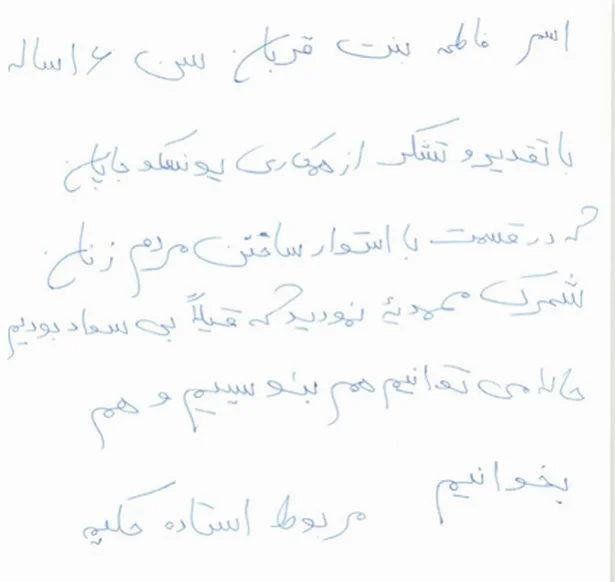 اسم فاطمه بنت قربان سن ۱۶ ساله
با تقدیر و تشکر از همکاری یونسکو جاپان
که در قسمت با استوار ساختن مردم زنان
شهرک مهدیۀ نمودید که قبلاً بی سواد بودیم
حالا می توانیم هم بنویسیم و هم
بخوانیم
مربوط استاده حکیم